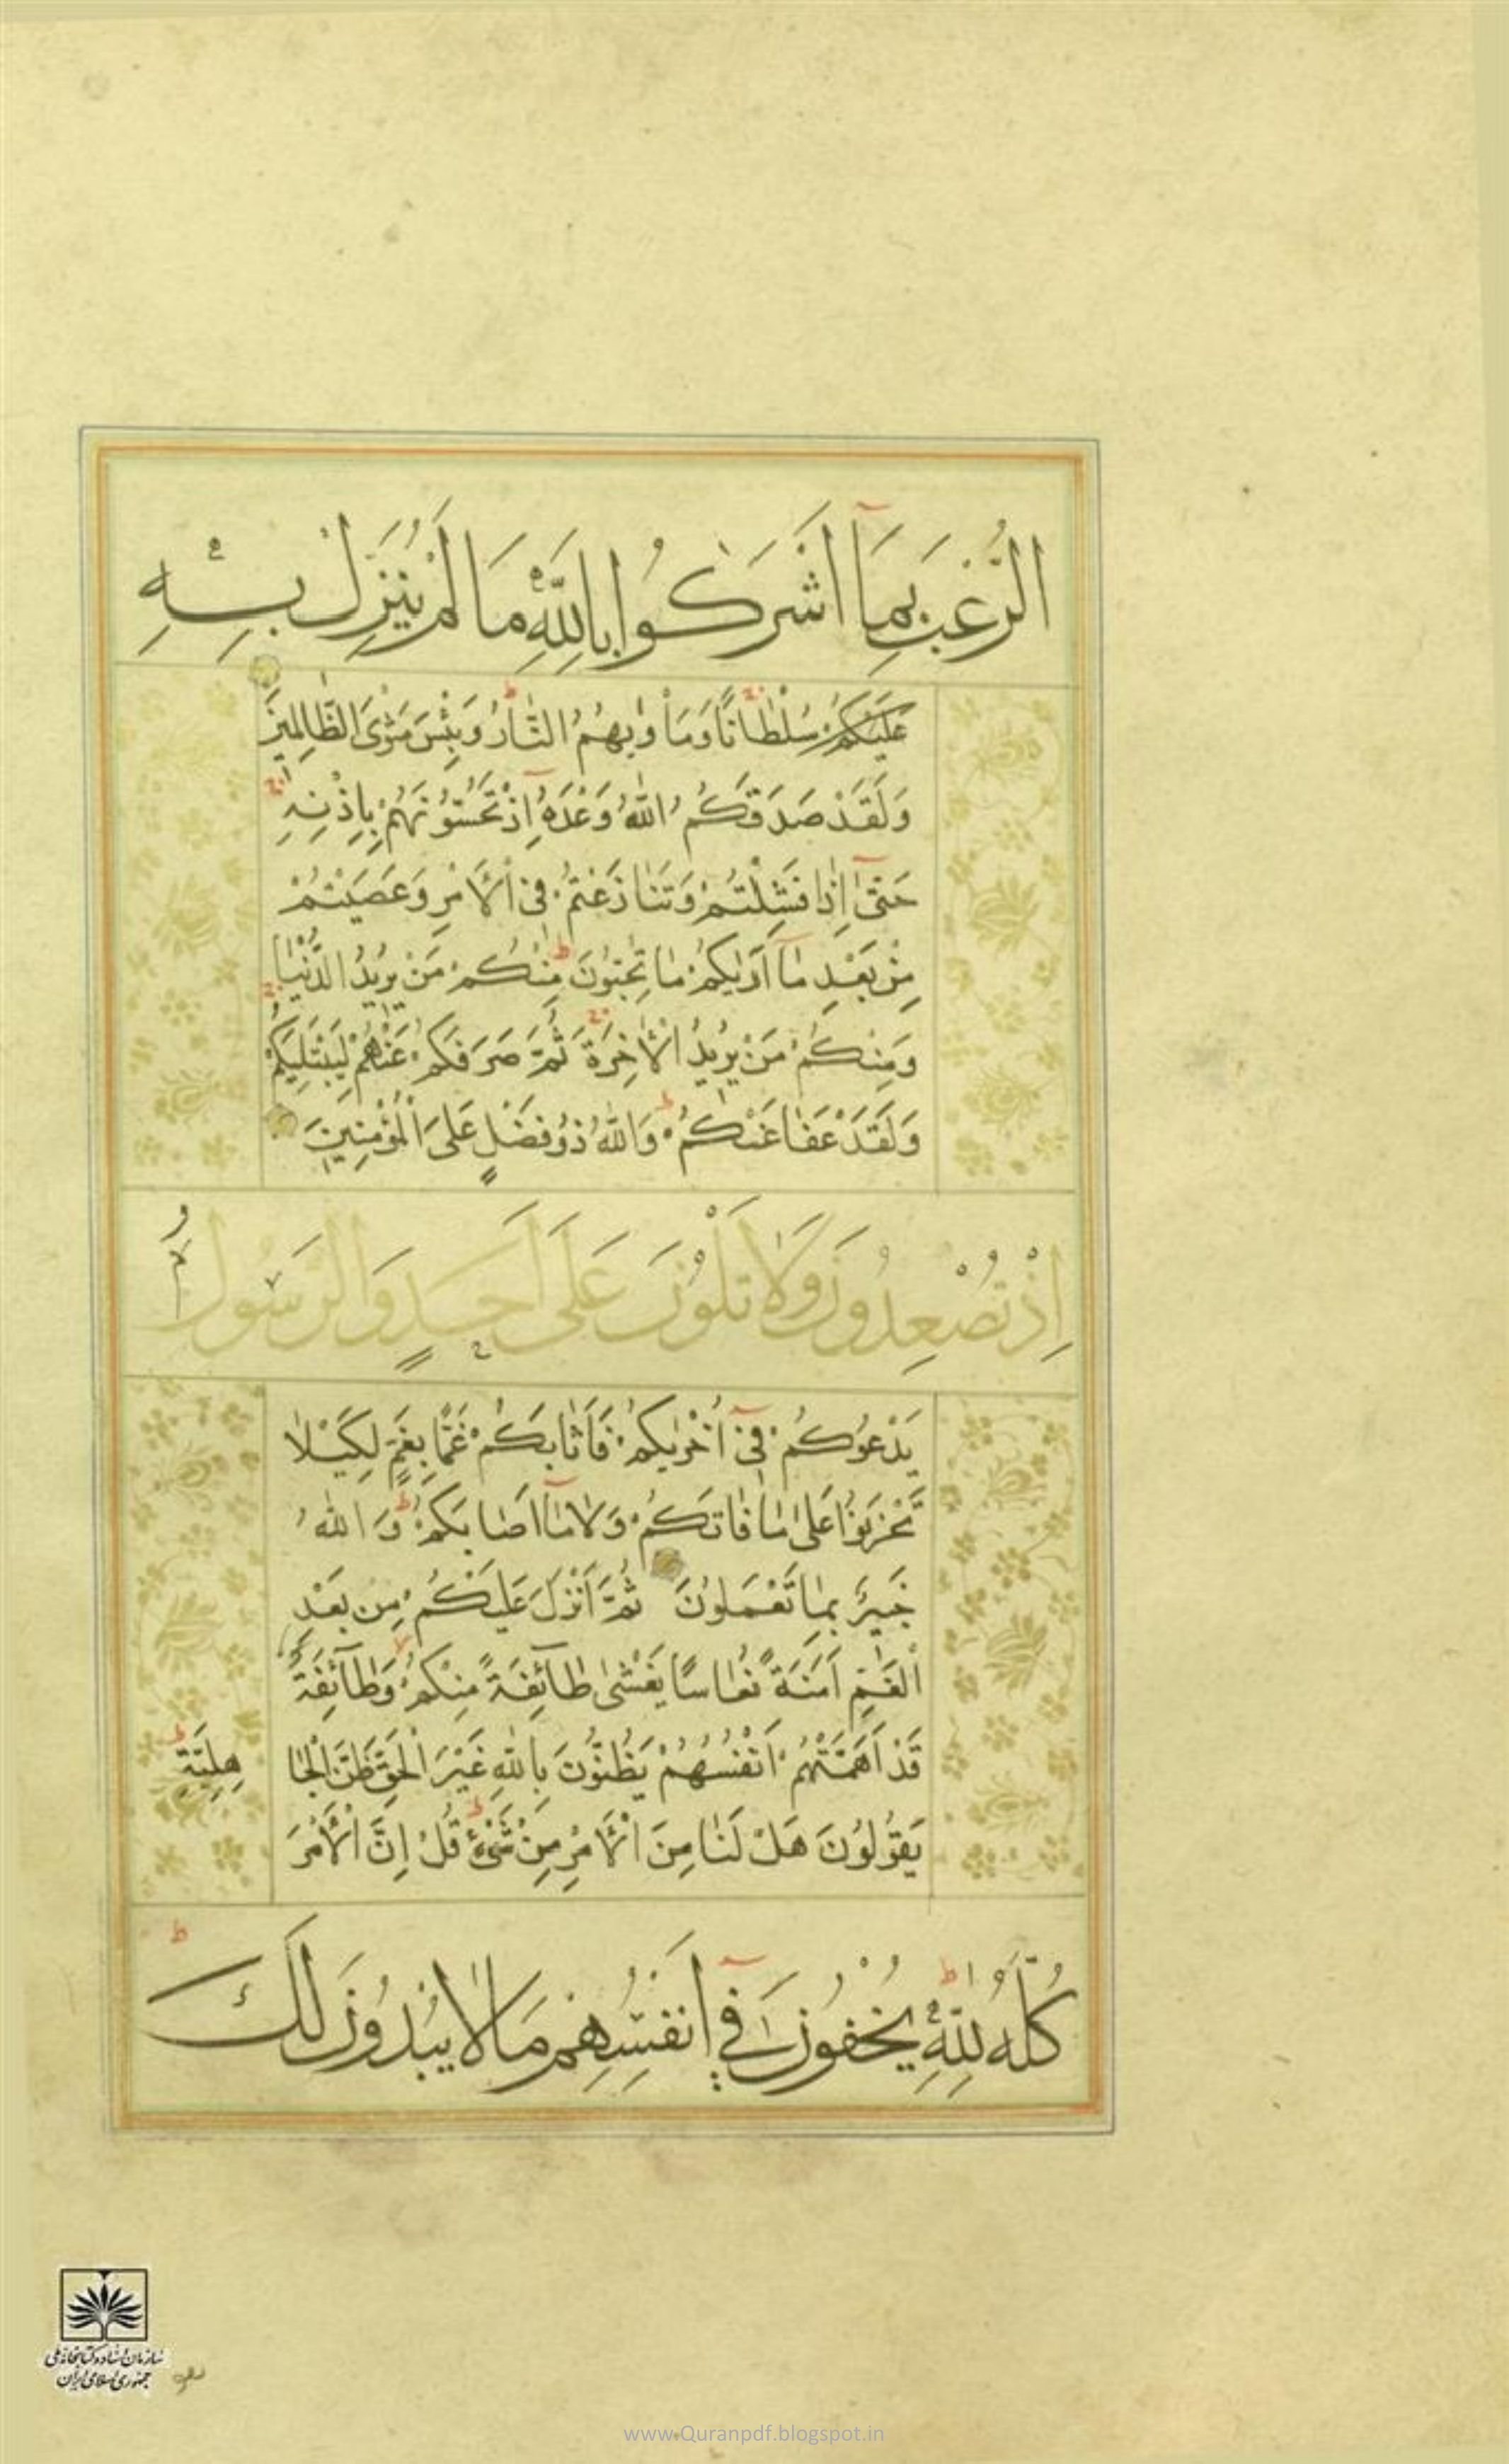 الرُّعْبَ بِمَآ اَشْرَكُوا بِاللّٰهِ مَا لَمْ يُنَزِّلْ بِهٖ
عَلَيْكُمْ سُلْطَانًا وَمَأْوٰيهُمُ النَّارُ وَبِئْسَ مَثْوَى الظَّالِمِينَ
وَلَقَدْ صَدَقَكُمُ اللّٰهُ وَعْدَهُٓ اِذْ تَحُسُّونَهُمْ بِاِذْنِهٖ
حَتّٰىٓ اِذَا فَشِلْتُمْ وَتَنَازَعْتُمْ فِى الْاَمْرِ وَعَصَيْتُمْ
مِنْ بَعْدِ مَآ اَرٰيكُمْ مَا تُحِبُّونَ مِنْكُمْ مَنْ يُرِيدُ الدُّنْيَا
وَمِنْكُمْ مَنْ يُرِيدُ الْاٰخِرَةَ ثُمَّ صَرَفَكُمْ عَنْهُمْ لِيَبْتَلِيَكُمْ
وَلَقَدْ عَفَا عَنْكُمْ وَاللّٰهُ ذُو فَضْلٍ عَلَى الْمُؤْمِنِينَ
اِذْ تُصْعِدُونَ وَلَا تَلْوُنَ عَلٰى اَحَدٍ وَالرَّسُولُ
يَدْعُوكُمْ فِىٓ اُخْرٰيكُمْ فَاَثَابَكُمْ غَمًّا بِغَمٍّ لِكَيْلَا
تَحْزَنُوا عَلٰى مَا فَاتَكُمْ وَلَا مَآ اَصَابَكُمْ وَاللّٰهُ
خَبِيرٌ بِمَا تَعْمَلُونَ ثُمَّ اَنْزَلَ عَلَيْكُمْ مِنْ بَعْدِ
الْغَمِّ اَمَنَةً نُعَاسًا يَغْشٰى طَآئِفَةً مِنْكُمْ وَطَآئِفَةٌ
قَدْ اَهَمَّتْهُمْ اَنْفُسُهُمْ يَظُنُّونَ بِاللّٰهِ غَيْرَ الْحَقِّ ظَنَّ الْجَا هِلِيَّةِ
يَقُولُونَ هَلْ لَنَا مِنَ الْاَمْرِ مِنْ شَىْءٍ قُلْ اِنَّ الْاَمْرَ
كُلَّهُ لِلّٰهِ يُخْفُونَ فِىٓ اَنْفُسِهِمْ مَا لَا يُبْدُونَ لَكَ
سازمان اسناد و کتابخانه ملی
جمهوری اسلامی ایران
www.Quranpdf.blogspot.in